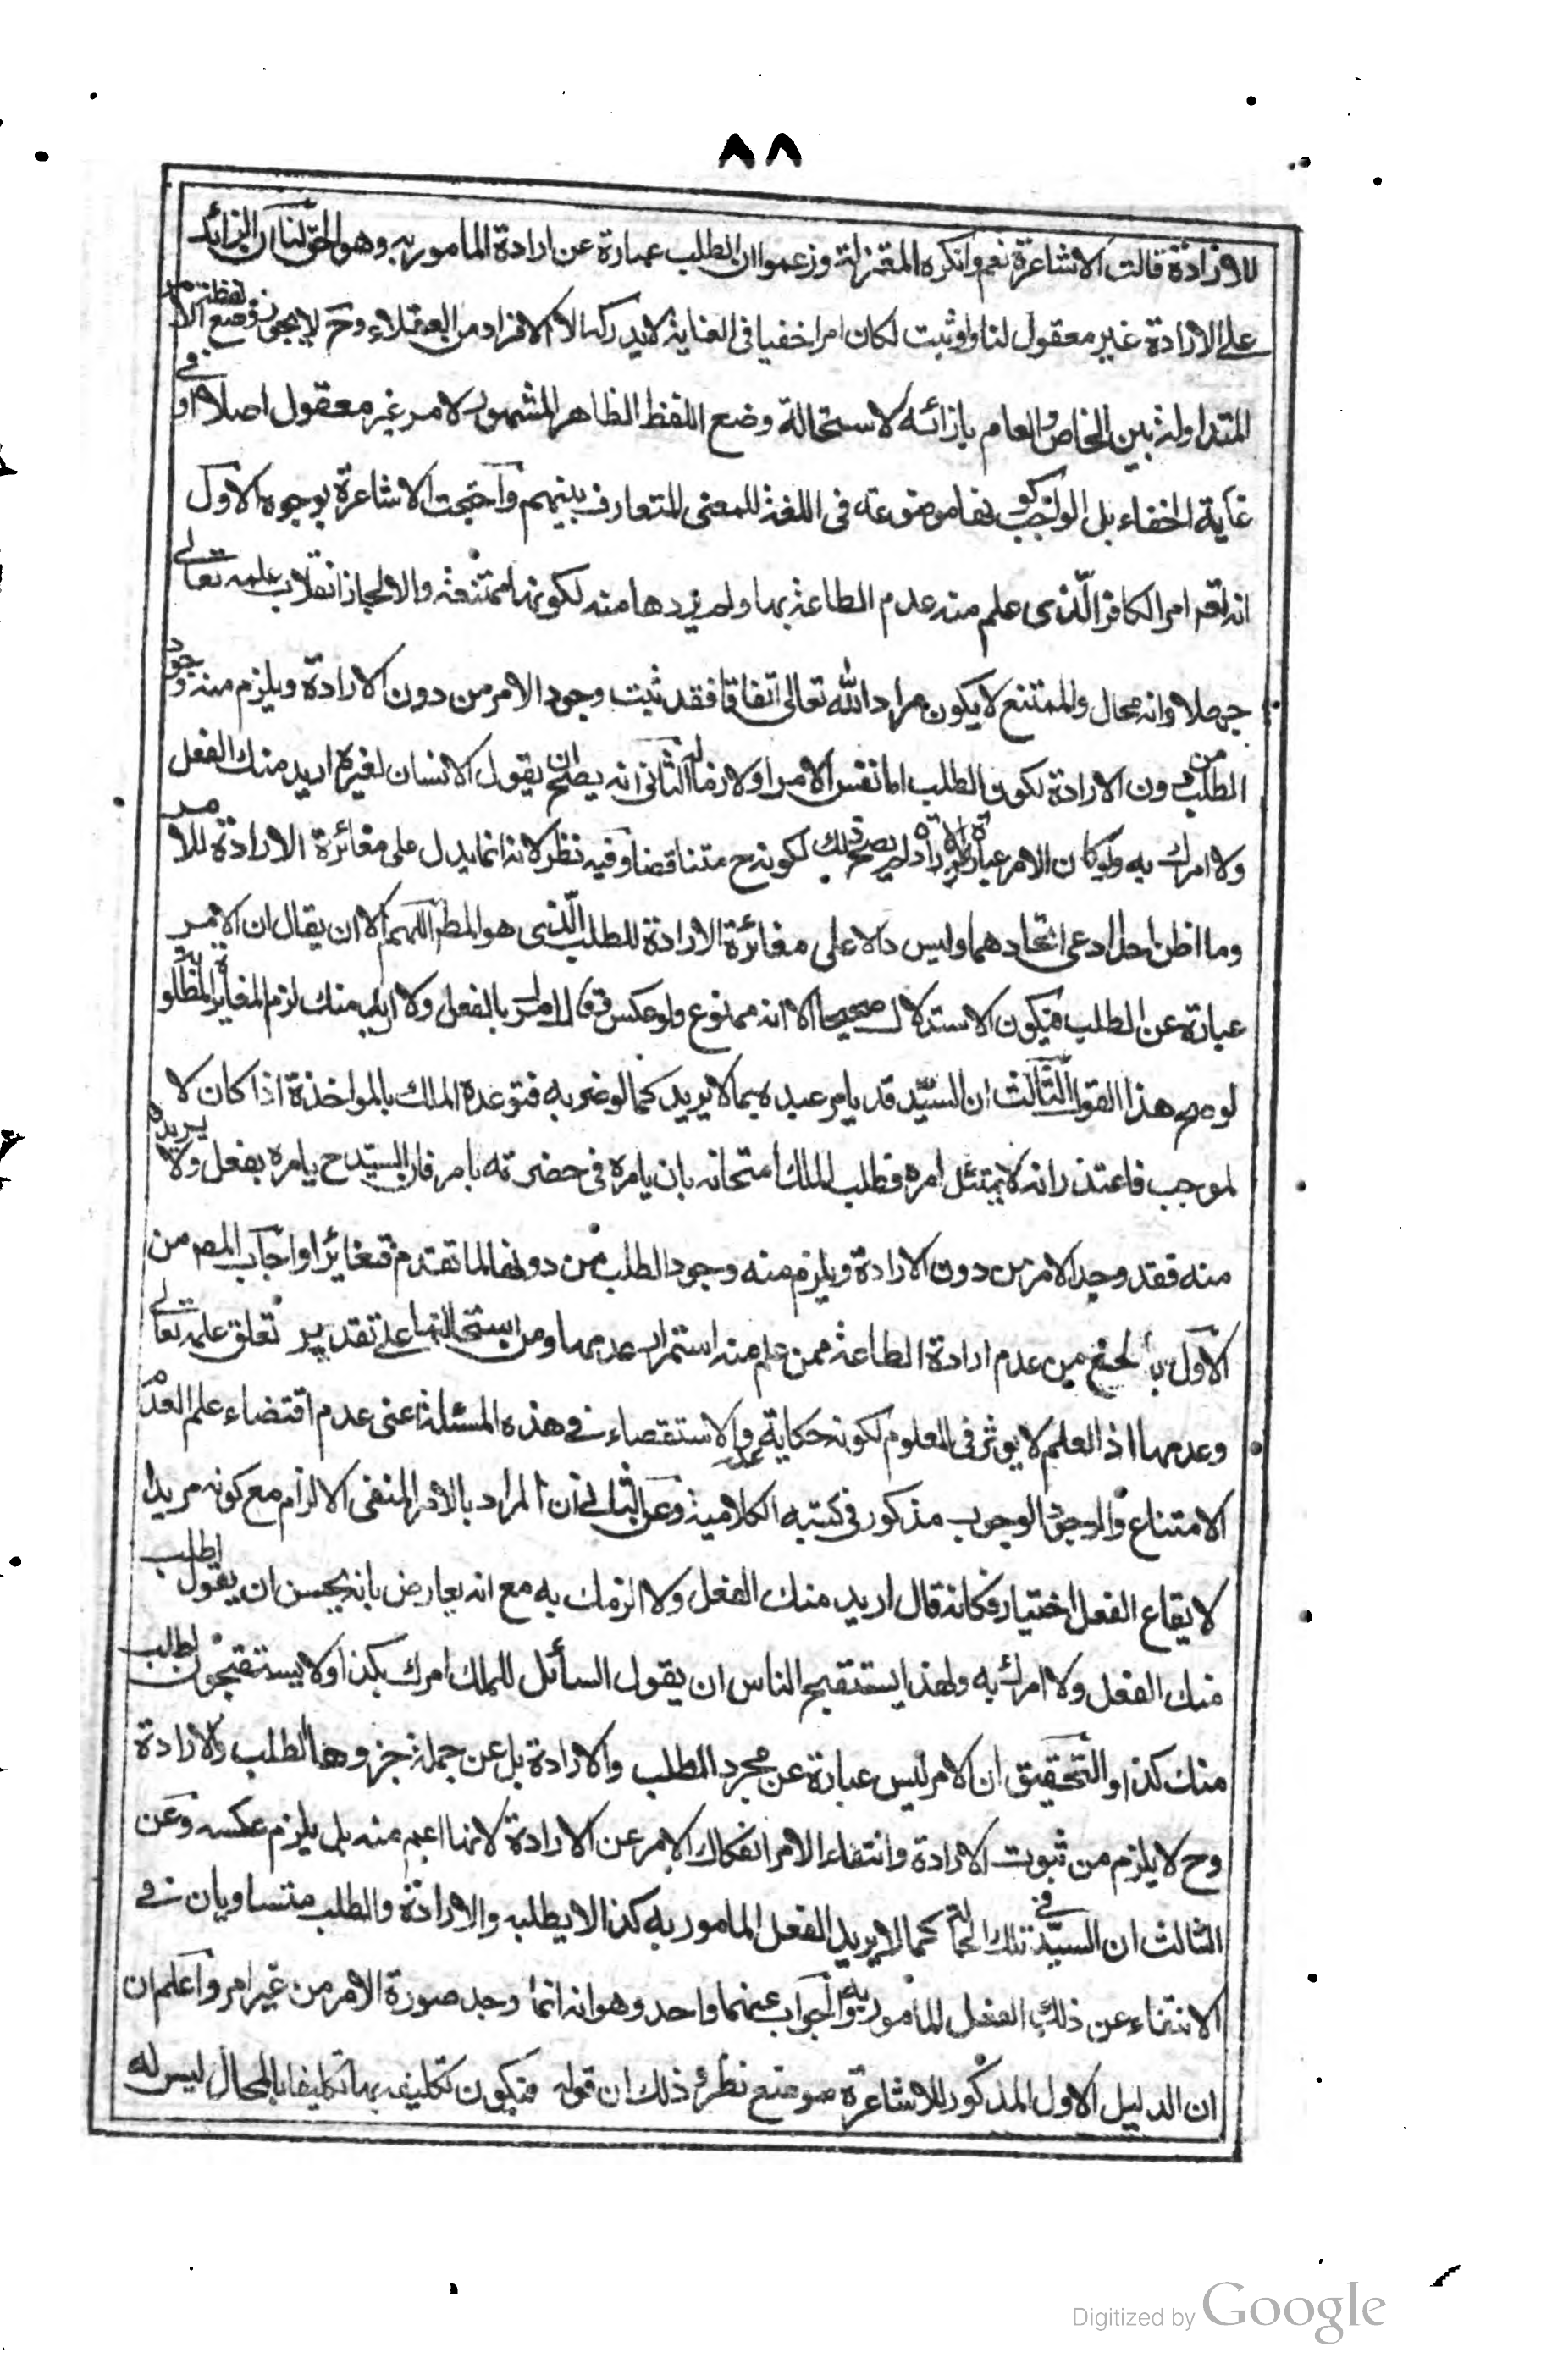 ٨٨
للارادة قالت الاشاعرة نعم وانكره المعتزلة وزعموا ان الطلب عبارة عن ارادة المامور به وهو الحق لنا ان الزائد
على الارادة غير معقول لنا ولو ثبت لكان امرا خفيا فى الغاية لا يدركه الا الافراد من العقلاء وح لا يجوز وضع لفظة الامر
المتداولة بين الخاص والعام بازائه لاستحالة وضع اللفظ الظاهر المشهور لامر غير معقول اصلا او فى
غاية الخفاء بل الواجب كونها موضوعة فى اللغة للمعنى المتعارف بينهم واحتجت الاشاعرة بوجوه الاول
انه تعم امر الكافر الّذى علم منه عدم الطاعة بها ولم يردها منه لكونها ممتنعة والا لجاز انقلاب علمه تعالى
جهلا وانه محال والممتنع لا يكون مراد الله تعالى اتفاقا فقد ثبت وجود الامر من دون الارادة ويلزم منه وجود
الطلب من دون الارادة لكون الطلب اما نفس الامر او لازما له الثانى انه يصح ان يقول الانسان لغيره اريد منك الفعل
ولا امرك به ولو كان الامر عبارة عن الارادة لم يصح ذلك لكونه ح متناقضا وفيه نظر لانه انما يدل على مغائرة الارادة للامر
وما اظن احدا ادعى اتحادهما وليس دالا على مغائرة الارادة للطلب الّذى هو المط اللهم الا ان يقال ان الامر
عبارة عن الطلب فيكون الاستدلال صحيحا الا انه ممنوع ولو عكس فقال امرك بالفعل ولا اريد منك لزم المغايرة المطلوبة
لو صح هذا القول الثالث ان السيّد قد يامر عبده بما لا يريد كما لو ضربه فتوعده الملك بالمواخذة اذا كان لا
لموجب فاعتذر انه لا يمتثل امره فطلب الملك امتحانه بان يامره فى حضرته بامر فان السيّد ح يامره بفعل ولا يريده
منه فقد وجد الامر من دون الارادة ويلزم منه وجود الطلب من دونها لما تقدم فتغائرا واجاب المص من
الاول بالمنع من عدم ارادة الطاعة ممن علم منه استمرار عدمها ومن استحالتها على تقدير تعلق علمه تعالى
وعدمها اذ العلم لا يوثر فى المعلوم لكونه حكاية عنه والاستقصاء فى هذه المسئلة اعنى عدم اقتضاء علم العدم
الامتناع والوجود الوجوب مذكور فى كتبه الكلامية وعن الثانى ان المراد بالامر المنفى الالزام مع كونه مريدا
لايقاع الفعل اختيارا فكانه قال اريد منك الفعل ولا الزمك به مع انه يعارض بانه يحسن ان يقول اطلب
منك الفعل ولا امرك به ولهذا يستقبح الناس ان يقول السائل للملك امرك بكذا ولا يستقبحون اطلب
منك كذا والتحقيق ان الامر ليس عبارة عن مجرد الطلب والارادة بل عن جملة جزوها الطلب والارادة
وح لا يلزم من ثبوت الارادة وانتفاء الامر انفكاك الامر عن الارادة لانها اعم منه بل يلزم عكسه وعن
الثالث ان السيّد فى تلك الحالة كما لا يريد الفعل المامور به كذا لا يطلبه والارادة والطلب متساويان فى
الانتفاء عن ذلك الفعل المامور به والجواب عنهما واحد وهو انه انما وجد صورة الامر من غير امر واعلم ان
ان الدليل الاول المذكور للاشاعرة موضع نظر وذلك ان قوله فيكون تكليفه بها تكليفا بالمحال ليس له
Digitized by Google